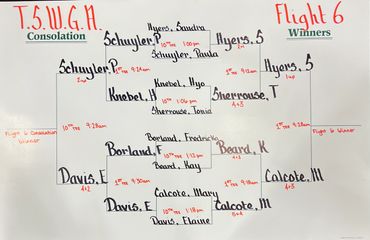 T.S.W.G.A.
Consolation
Flight 6
Winners
Hyers, Sandra
Schuyler, P
10th Tee 1:00pm
Hyers, S
Schuyler, Paula
2up
Schuyler, P
1st Tee 9:24am
1st Tee 9:12am
Hyers, S
2up
1up
Knebel, Hyo
Knebel, H
10th Tee 1:06pm
Sherrouse, T
Sherrouse, Tonia
4+3
Flight 6 Consolation
Winner
10th Tee 9:28am
Flight 6 Winner
Borland, Fredricka
Borland, F
10th Tee 1:12pm
Beard, K
Beard, Kay
4+3
Davis, E
1st Tee 9:30am
1st Tee 9:18am
Calcote, M
4+2
4+3
Calcote, Mary
Davis, E
10th Tee 1:18pm
Calcote, M
Davis, Elaine